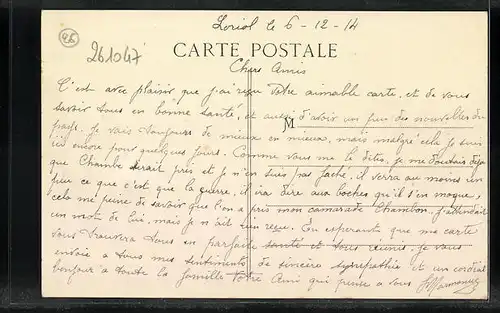 Loriol le 6-12-14
45
261047
CARTE POSTALE
Chers Amis
C'est avec plaisir que j'ai reçu Votre aimable carte, et de vous
savoir tous en bonne santé, et aussi d'avoir un peu des nouvelles du
pays. Je vais toujours de mieux en mieux, mais malgré cela je suis
M
ici encore pour quelques jours. Comme vous me le dites, je me doutais déjà
que Chambe serait pris et je n'en suis pas faché, il verra au moins un
peu ce que c'est que la guerre, il ira dire aux boches qu'il s'en moque,
cela me peine de savoir que l'on a pris mon camarade Chambon. j'attendait
un mote de lui, mais je n'ait rien reçue. En esperante que ma carte
vous trouvera tous en parfaite santé et tous réunis, je vous
envoie a tous mes sentiments de sincère sympathie et un cordial
bonjour a toute la famille Votre Ami qui pense a vous